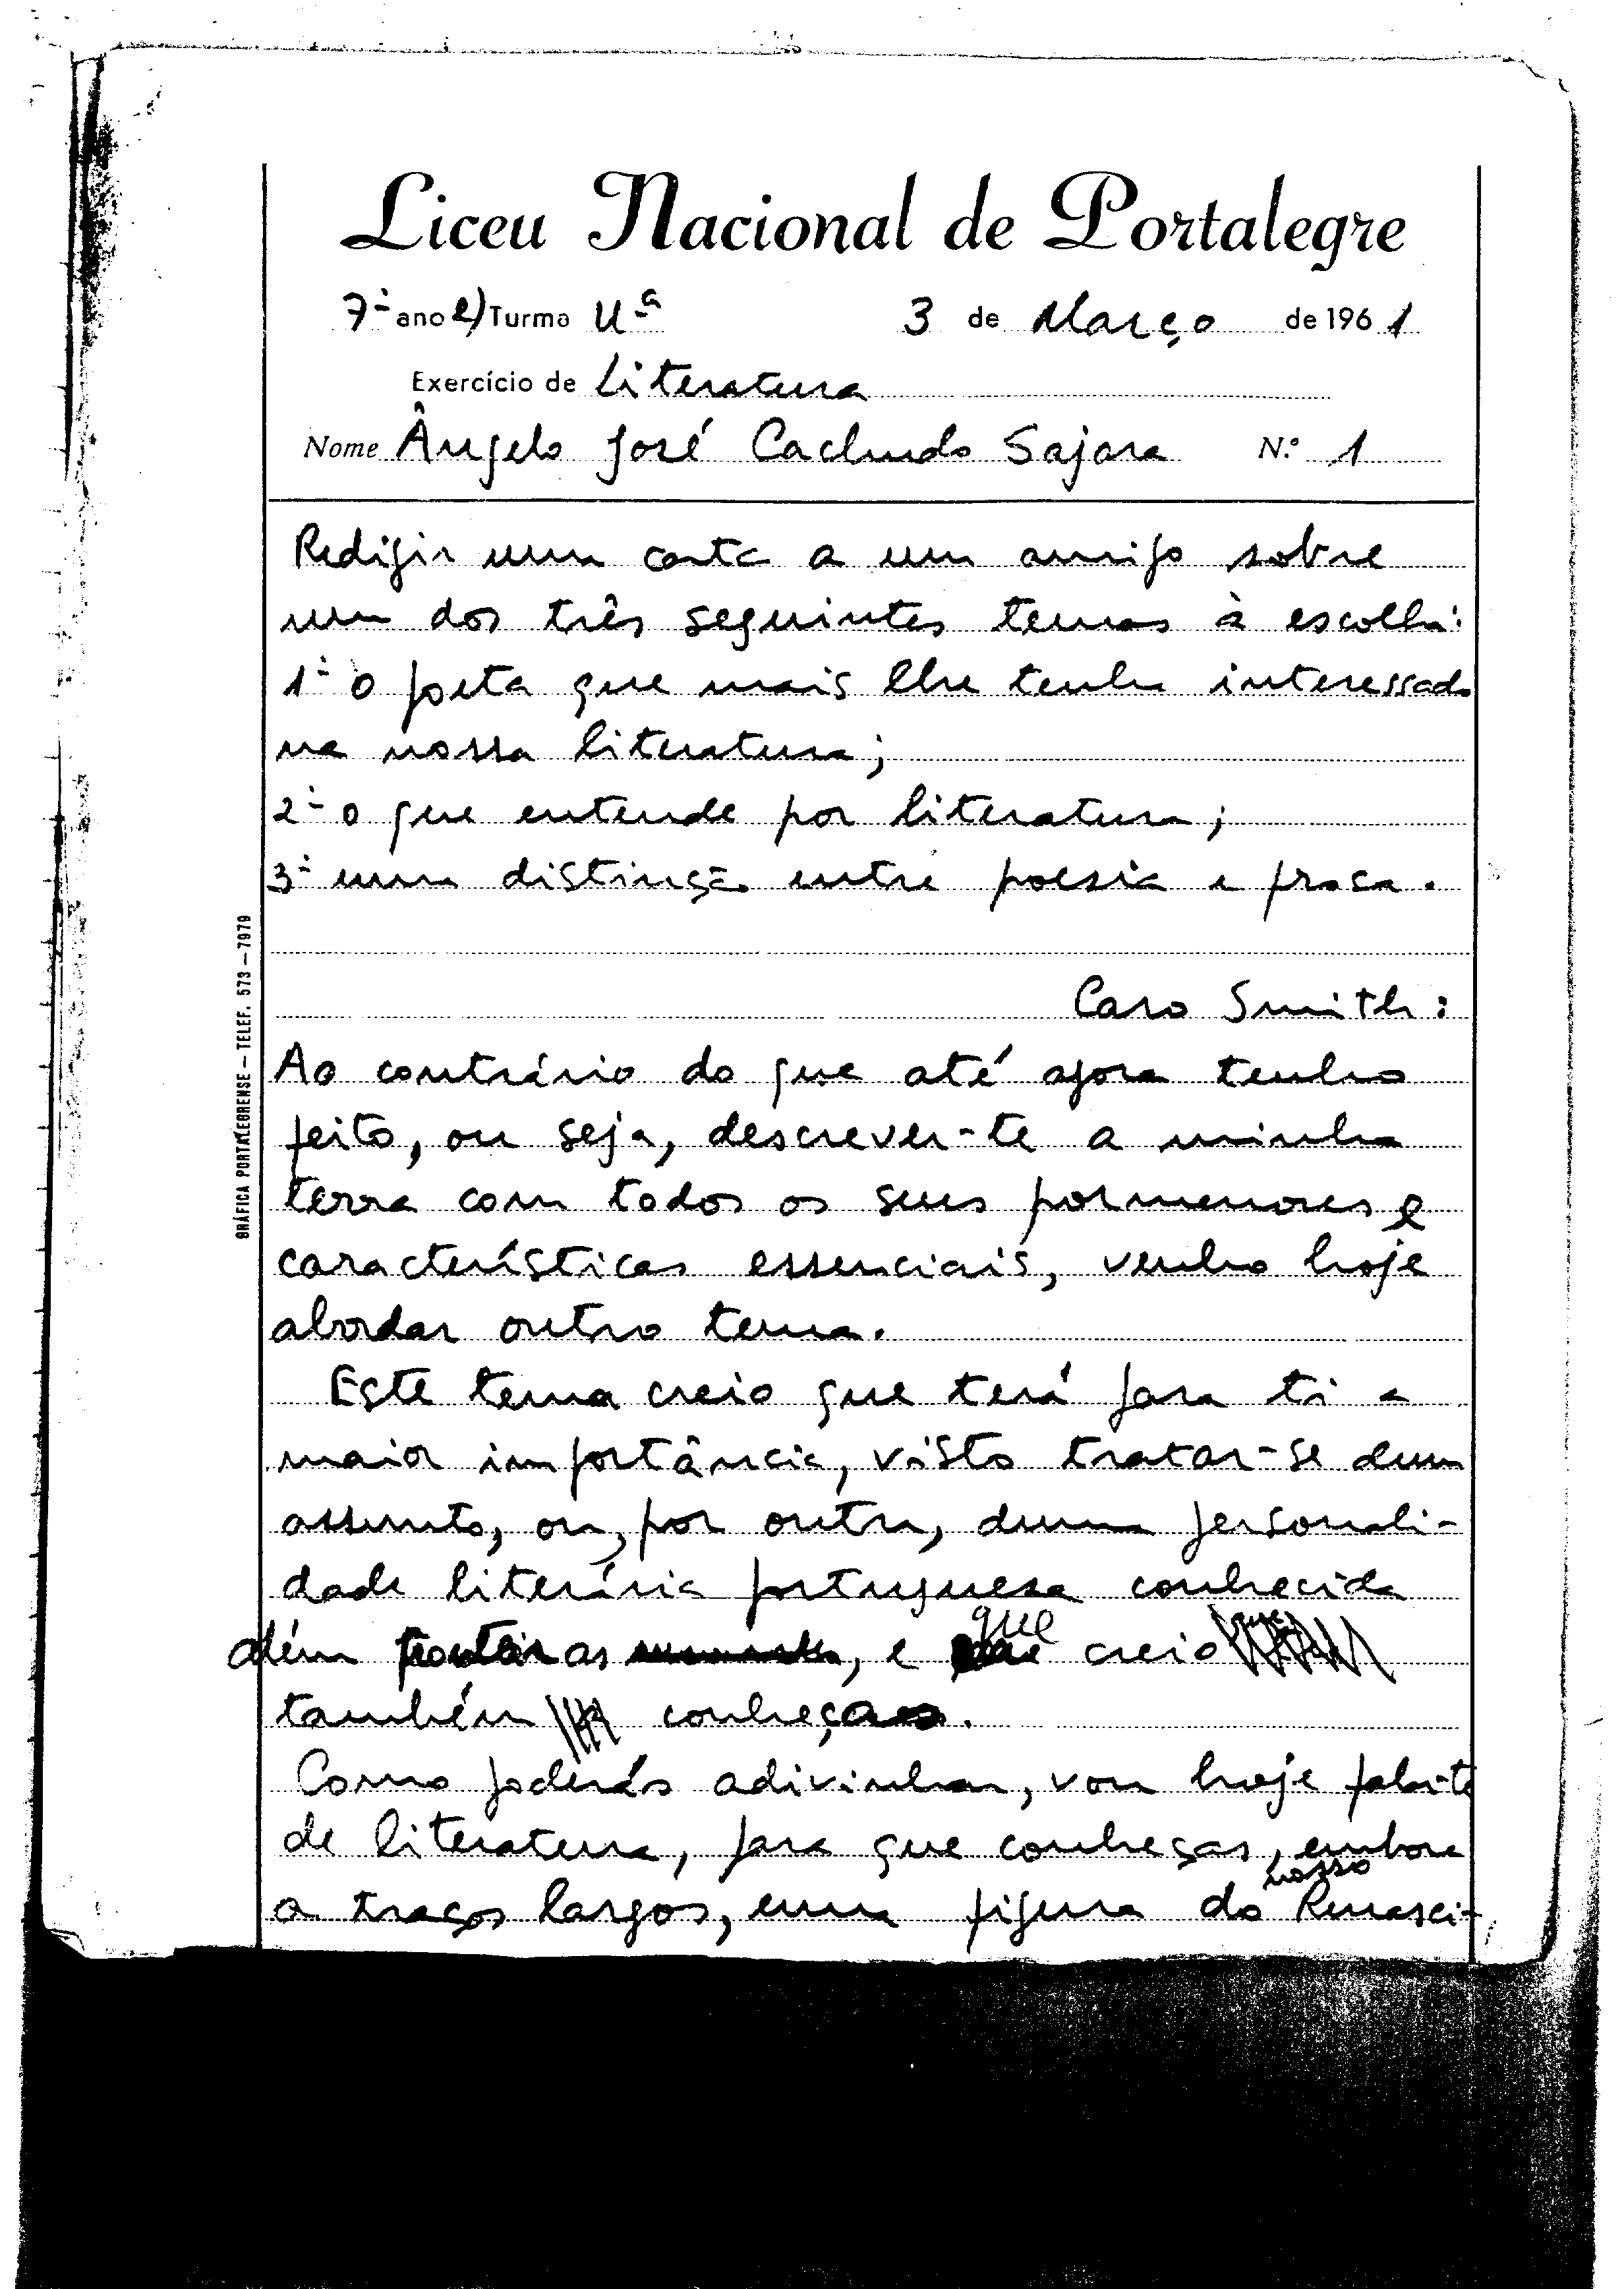 Liceu Nacional de Portalegre
7º ano e) Turma Uª 3 de Março de 1961
Exercício de Literatura
Nome Ângelo José Cachudo Sajara N.º 1
Redigir uma carta a um amigo sobre
um dos três seguintes temas à escolha:
1º o poeta que mais lhe tenha interessado
na nossa literatura;
2º o que entende por literatura;
3º uma distinção entre poesia e prosa.
Caro Smith:
Ao contrário do que até agora tenho
feito, ou seja, descrever-te a minha
terra com todos os seus pormenores e
características essenciais, venho hoje
abordar outro tema.
Este tema creio que terá para ti a
maior importância, visto tratar-se dum
assunto, ou, por outra, duma personali-
dade literária portuguesa conhecida
além fronteiras, e que creio
também conheças.
Como poderás adivinhar, vou hoje falar-te
de literatura, para que conheças, embora
a traços largos, uma figura do nosso Renasci-
GRÁFICA PORTALEGRENSE — TELEF. 573 — 7979